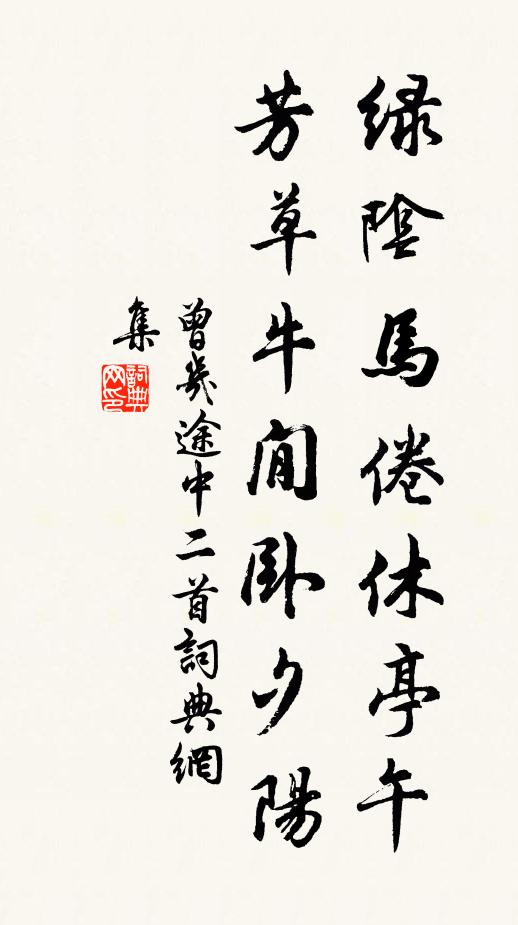 綠陰馬倦休亭午
芳草牛閒臥夕陽
曾幾途中二首詞典網
集
詞典
网印